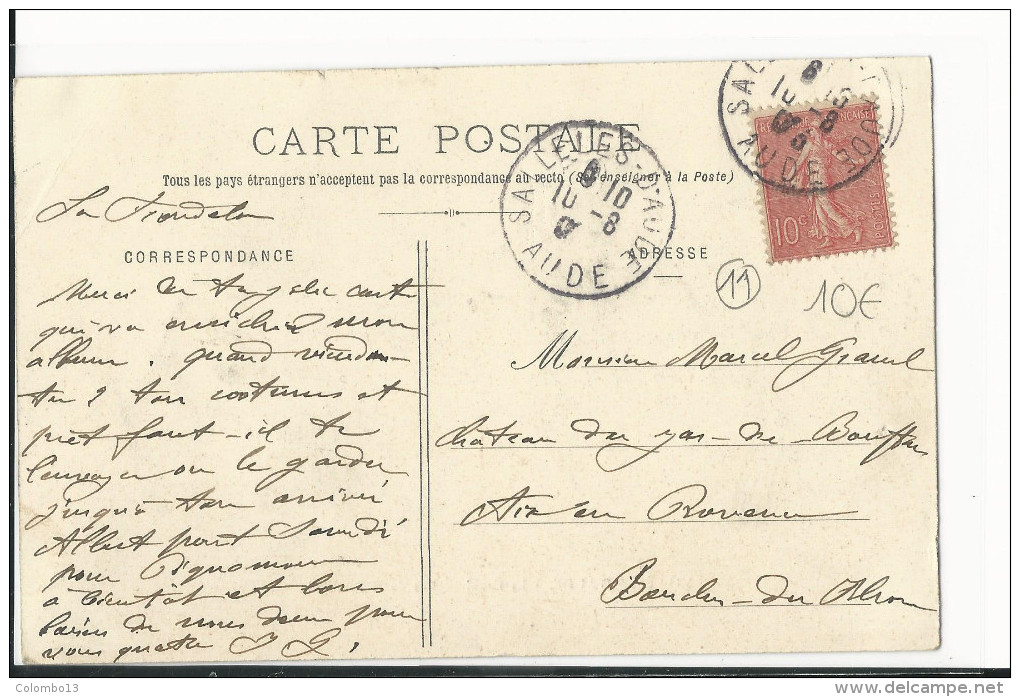 CARTE POSTALE
Tous les pays étrangers n'acceptent pas la correspondance au recto (Se renseigner à la Poste)
SALLELES-D'AUDE
8 10
10 -8
AUDE
8 10
10 -8
AUDE
10c
POSTES
CORRESPONDANCE
ADRESSE
11
10€
Merci de ta jolie carte
qui va enrichir mon
album. quand viendras
tu ? ton costume est
prêt faut-il te
l'envoyer ou le garder
jusqu'à ton arrivée
Albert part Samedi
pour
à bientôt et bons
baisers de nous deux pour
vous quatre J G.
Monsieur Marcel
château du gas-de-Bouffan
Aix en Provence
Bouches-du Rhône
Colombo13
www.delcampe.net